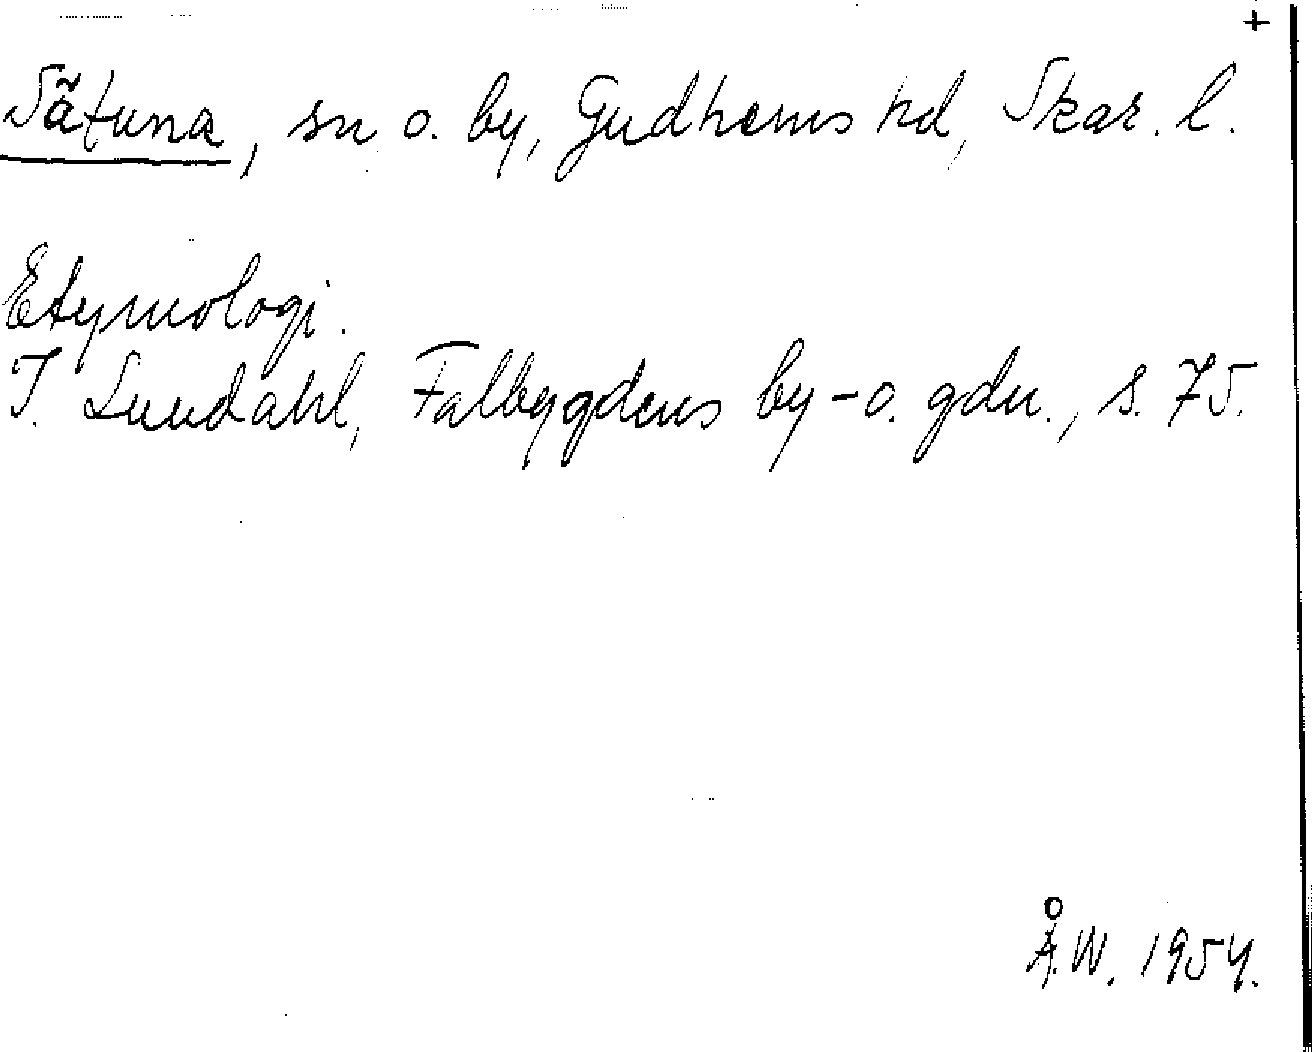 +
Sätuna, sn o. by, Gudhems hd, Skar. l.
Etymologi.
I. Lundahl, Falbygdens by- o. gdn., s. 75.
Å.W. 1954.